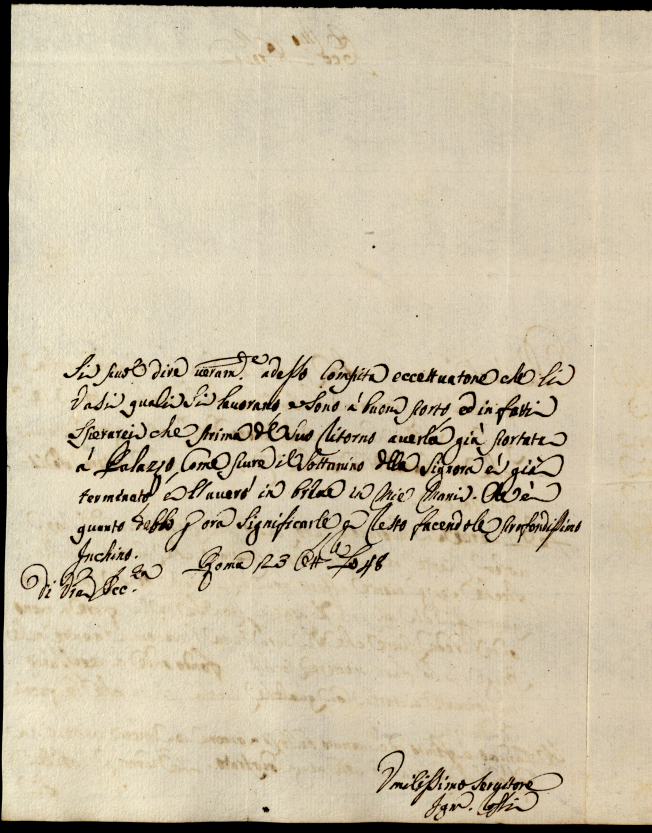 Si può dire veram.te adesso Compita eccettuatone che li
Vasi quali si lavorano e sono a buon porto ed in fatti
sperarei che prima del suo ritorno averla già portata
à Palazzo, Come pure il Sottanino della Signora è già
terminato e l'averò in breve in Mie Mani. Che è
quanto debbo p ora significarle e resto facendole profondissimo
Inchino.
Di Vra Ecc.za Roma 23 48
Umilissimo Servitore
Ign.